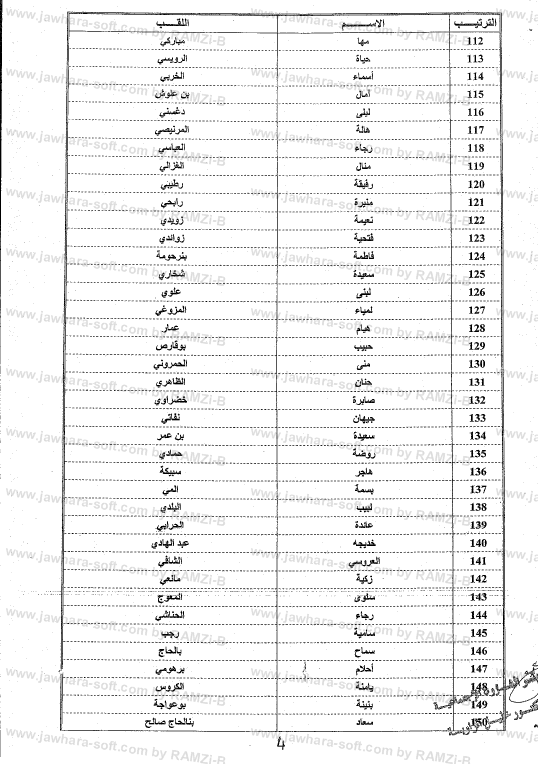 الترتيب الاسم اللقب
112 مها مباركي
113 حياة الرويسي
114 أسماء الخربي
115 آمال بن علوش
116 ليلى دغسني
117 هالة المرنيصي
118 رجاء العباسي
119 منال الغزالي
120 رفيقة رطيبي
121 منيرة رابحي
122 نعيمة زويدي
123 فتحية زواندي
124 فاطمة بنرحومة
125 سعيدة شخاري
126 لبنى علوي
127 لمياء المزوغي
128 هيام عمار
129 حبيب بوقارص
130 منى الحمروني
131 حنان الظاهري
132 صابرة خضراوي
133 جيهان نفاتي
134 سعيدة بن عمر
135 روضة حمادي
136 هاجر سبيكة
137 بسمة المي
138 لبيب البلدي
139 عائدة الحرابي
140 خديجه عبد الهادي
141 العروسي الشافي
142 زكية مانعي
143 سلوى المعوج
144 رجاء الحناشي
145 سامية رجب
146 سماح بالحاج
147 أحلام برهومي
148 يامنة الكروس
149 بنينة بوعواجة
150 سعاد بنالحاج صالح
4
www.jawhara-soft.com by RAMZi-B